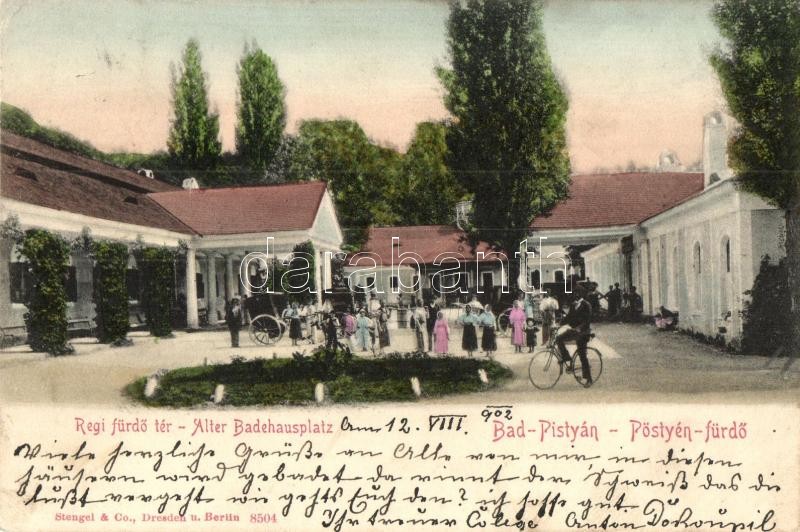 darabanth.com
Regi fürdő tér - Alter Badehausplatz Am 12. VIII. 902 Bad-Pistyán - Pöstyén-fürdő
Viele herzliche Grüße an Alle von mir in diesen
häusern wird gebadet da rinnt der Schweiß das die
Lust vergeht wie gehts Euch den? ich hoffe gut.
Stengel & Co., Dresden u. Berlin 8504 Ihr treuer College Anton